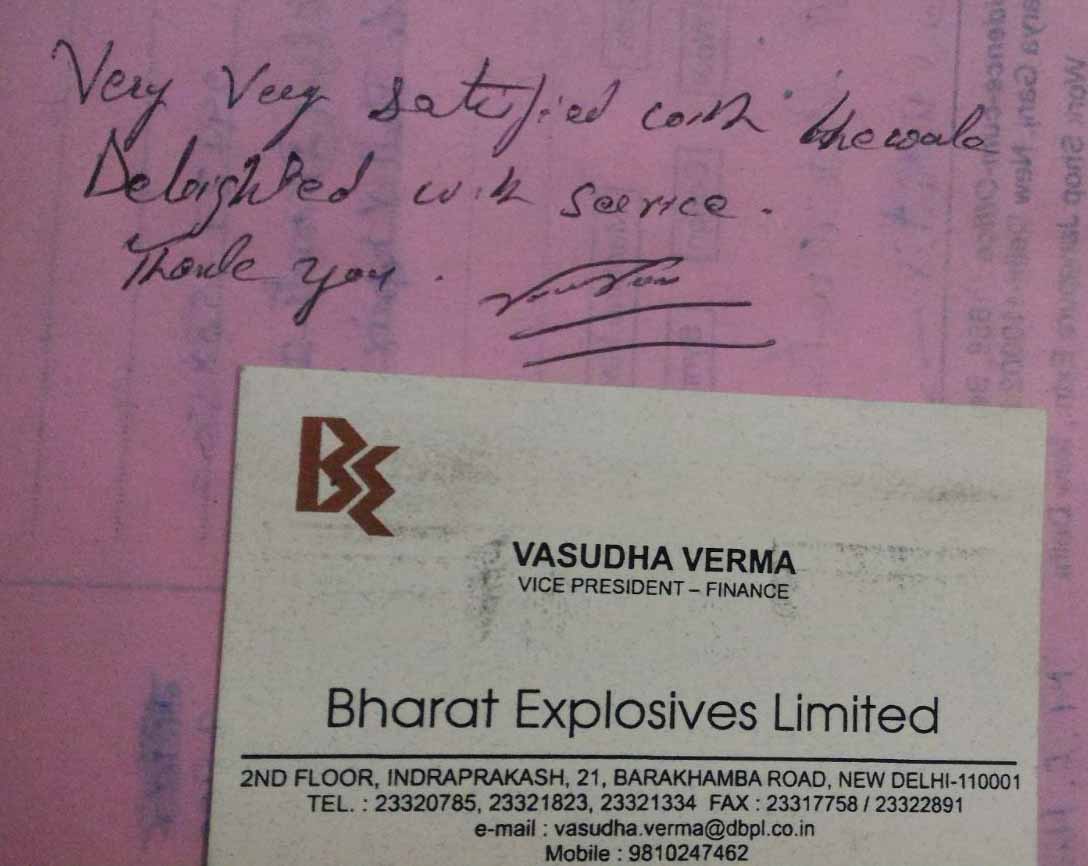 Very Very Satisfied with the work
Delighted with service.
Thank you.
BE
VASUDHA VERMA
VICE PRESIDENT – FINANCE
Bharat Explosives Limited
2ND FLOOR, INDRAPRAKASH, 21, BARAKHAMBA ROAD, NEW DELHI-110001
TEL. : 23320785, 23321823, 23321334 FAX : 23317758 / 23322891
e-mail : vasudha.verma@dbpl.co.in
Mobile : 9810247462